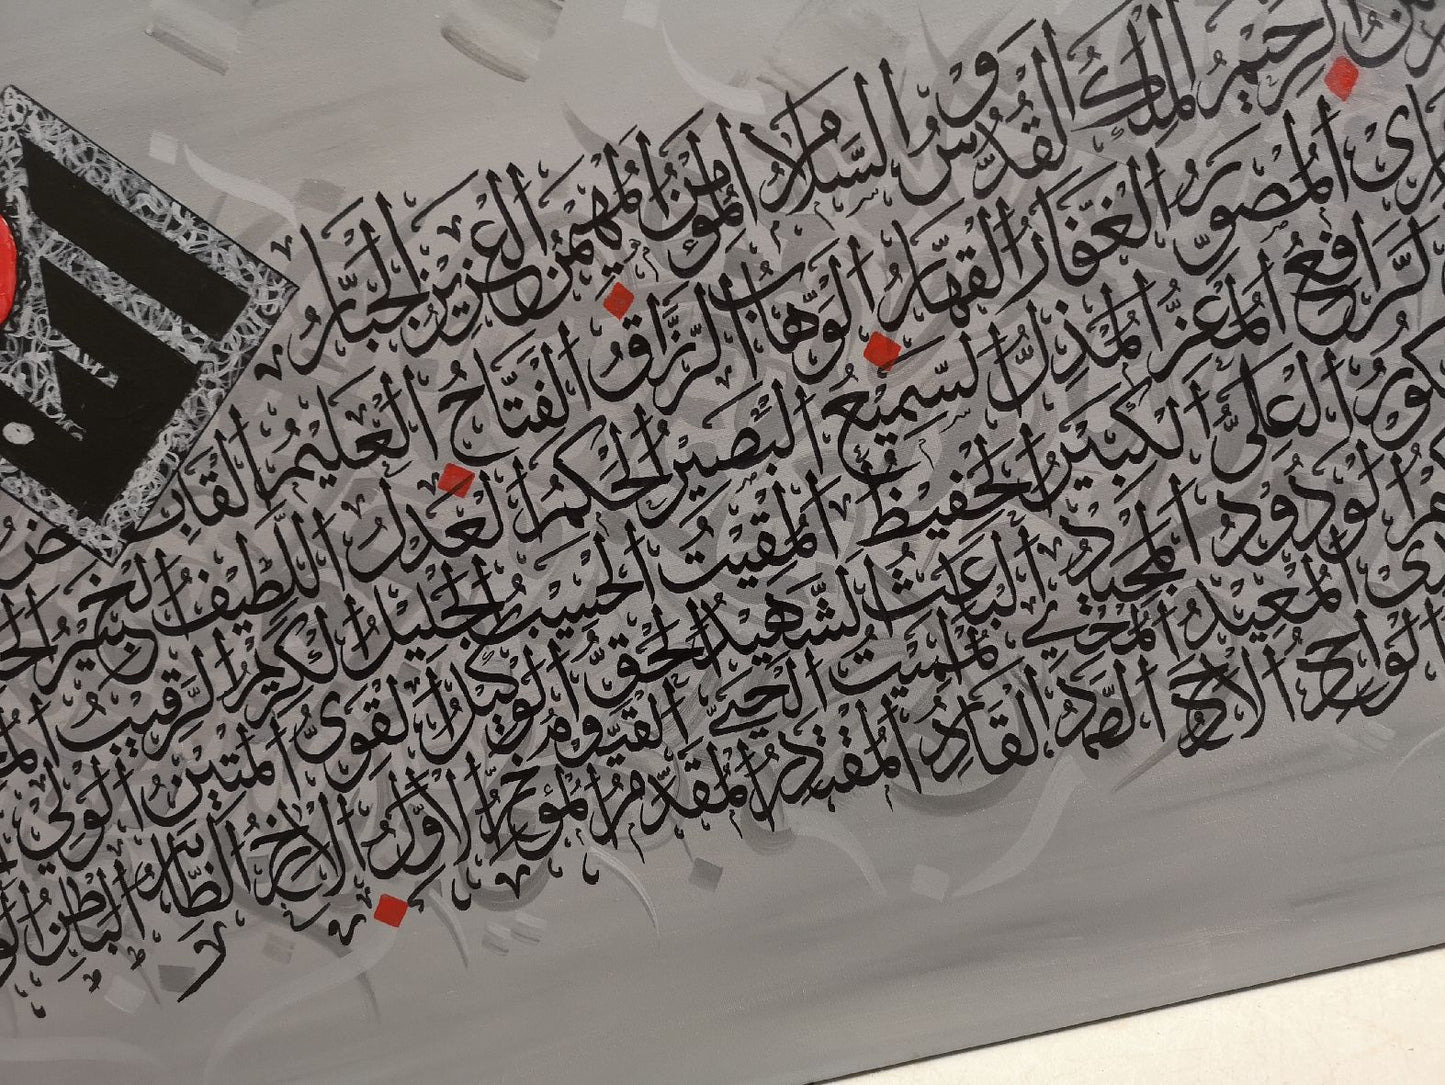 الرحيم الملك القدوس السلام المؤمن المهيمن العزيز الجبار
البارئ المصور الغفار القهار الوهاب الرزاق الفتاح العليم القابض
الرافع المعز المذل السميع البصير الحكم العدل اللطيف الخبير
الشكور العلي الكبير الحفيظ المقيت الحسيب الجليل الكريم الرقيب
الودود المجيد الباعث الشهيد الحق الوكيل القوي المتين الولي
المعيد المحيي المميت الحي القيوم
الواحد الاحد الصمد القادر المقتدر المقدم المؤخر الاول الاخر الظاهر الباطن